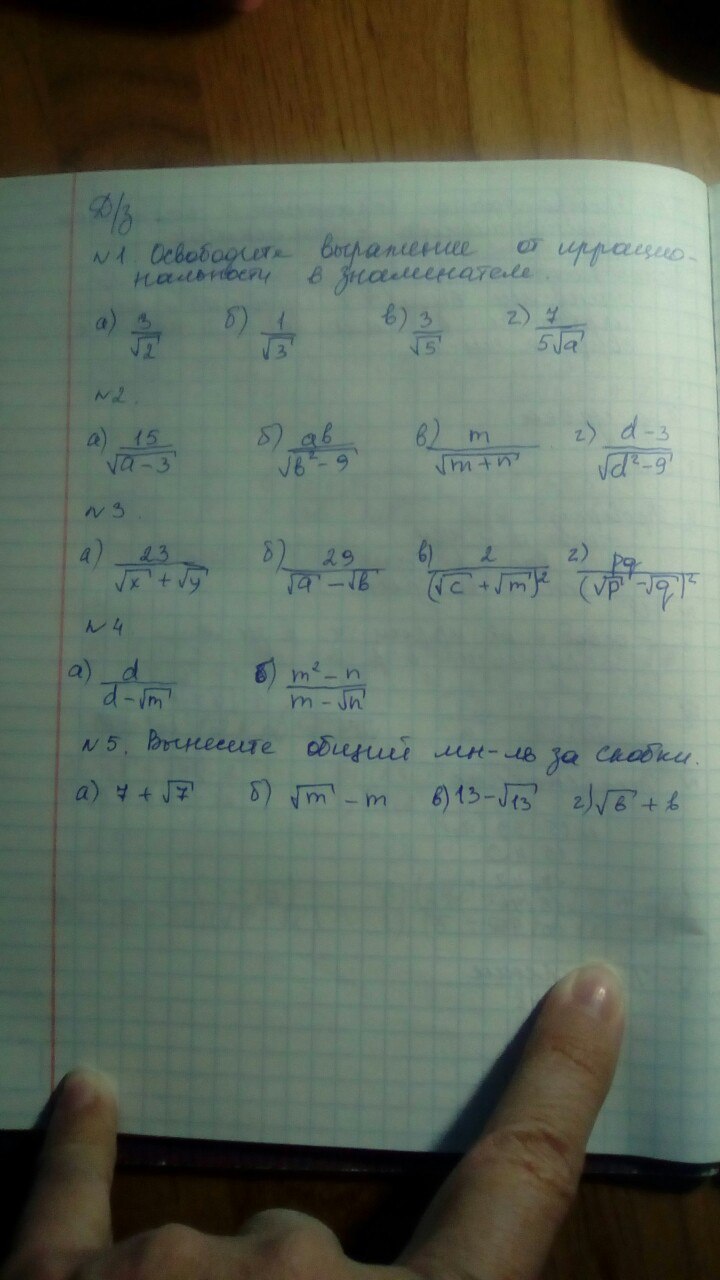 Д/з
№1. Освободите выражение от иррацио-
нальности в знаменателе.
а) 3/√2 б) 1/√3 в) 3/√5 г) 7/5√a
№2.
а) 15/√a-3 б) ab/√b²-9 в) m/√m+n г) d-3/√d²-9
№3.
а) 23/√x+√y б) 29/√a-√b в) 2/(√c+√m)² г) pq/(√p-√q)²
№4
а) d/d-√m б) m²-n/m-√n
№5. Вынесите общий мн-ль за скобки.
а) 7+√7 б) √m-m в) 13-√13 г) √b+b